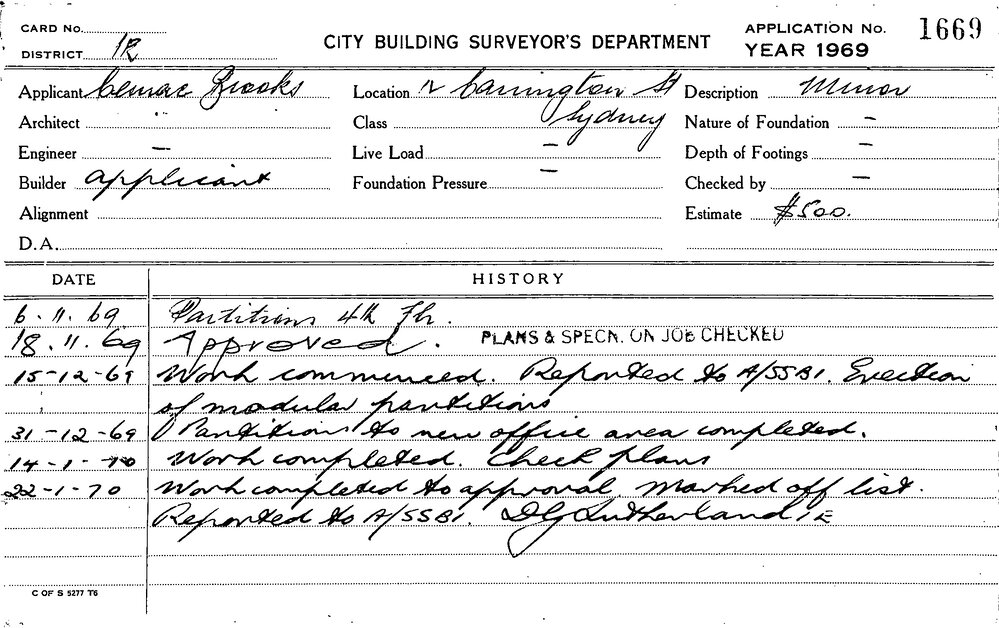 CARD No.
DISTRICT 1R
CITY BUILDING SURVEYOR'S DEPARTMENT
APPLICATION No. 1669
YEAR 1969
Applicant Cemac Brooks
Location Carrington St Sydney
Description Minor
Architect
Class
Nature of Foundation –
Engineer –
Live Load –
Depth of Footings –
Builder applicant
Foundation Pressure –
Checked by –
Alignment
Estimate $500.
D.A.
DATE HISTORY
6.11.69 Partitions 4th Flr.
18.11.69 Approved. PLANS & SPECN. ON JOB CHECKED
15-12-69 Work commenced. Reported to A/SSBI. Erection
of modular partitions
31-12-69 Partitions to new office area completed.
14-1-70 Work completed. Check plans
22-1-70 Work completed to approval. Marked off list.
Reported to A/SSBI. DG Sutherland 1E
C OF S 5277 T6